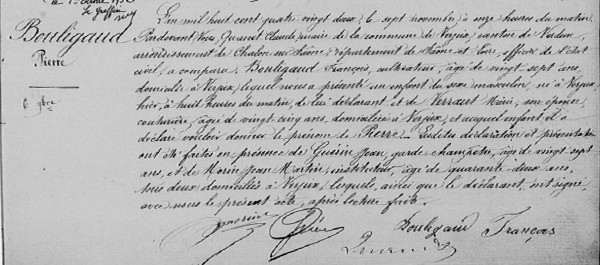 Le greffier
Bouligaud
Pierre
L'an mil huit cent quatre vingt deux, le sept novembre, à onze heures du matin
Pardevant Nous, Claude, maire de la commune de Verjux, canton de Verdun,
arrondissement de Chalon sur Saône, département de Saône et Loire, officier de l'état
civil, a comparu Bouligaud François, cultivateur, âgé de vingt sept ans,
domicilié à Verjux, lequel nous a présenté un enfant du sexe masculin, né à Verjux
hier, à huit heures du matin, de lui déclarant et de Verraut Marie, son épouse
couturière, âgée de vingt cinq ans, domiciliée à Verjux, et auquel enfant il a
déclaré vouloir donner le prénom de Pierre. Lesdites déclaration et présentation
ont été faites en présence de Guérin Jean, garde champêtre, âgé de vingt sept
ans, et de Morin Jean Martin, instituteur, âgé de quarante deux ans,
tous deux domiciliés à Verjux, lesquels, ainsi que le déclarant, ont signé
avec nous le présent acte, après lecture faite.
Bouligaud François